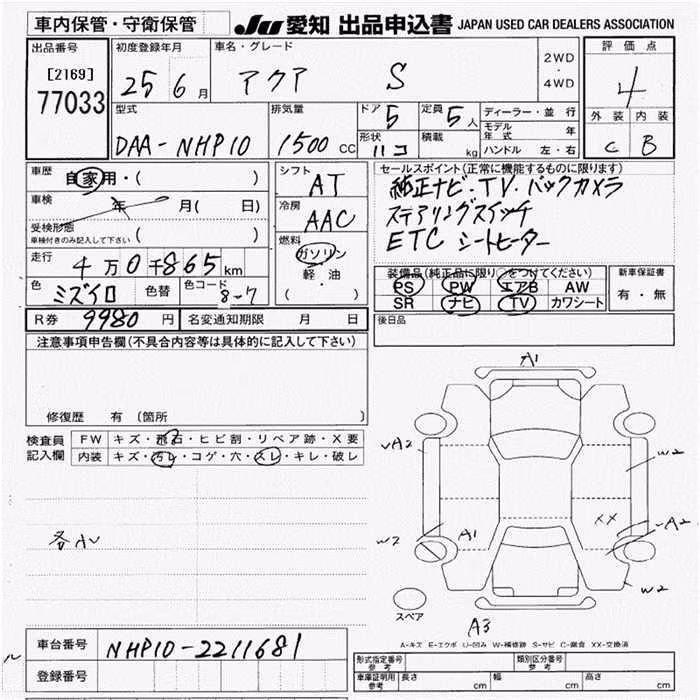 車内保管・守衛保管 JU 愛知 出品申込書 JAPAN USED CAR DEALERS ASSOCIATION
出品番号
[2169]
77033
初度登録年月
25 6 月
車名・グレード
アクア S
2WD
・
4WD
評価点
4
外装 内装
C B
型式
DAA-NHP10
排気量
1500 CC
ドア 5
形状 ハコ
定員 5 人
積載 kg
ディーラー・並行
モデル年式 年
ハンドル 左・右
車歴
自家用・( )
車検
年 月( 日)
受検形態
車検付きのみ記入して下さい ( )
走行
4 万 0 千 865 km
色
ミズイロ
色替
色コード
8-7
シフト
AT
冷房
AAC
燃料
ガソリン
軽・油
( ・ )
セールスポイント(正常に機能するものに限ります)
純正ナビ・TV・バックカメラ
ステアリングスイッチ
ETC シートヒーター
装備品(純正品に限り○をつけてください)
PS PW エアB AW
SR ナビ TV カワシート
新車保証書
有・無
R券 9980 円
名変通知期限 月 日
後日品
注意事項申告欄(不具合内容等は具体的に記入して下さい)
修復歴 有 (箇所 )
検査員
記入欄
FW キズ・飛石・ヒビ割・リペア跡・X要
内装 キズ・汚レ・コゲ・穴・スレ・キレ・破レ
各AU
A1
A2
W2
W2
A1
XX
A2
W2
スペア
A3
A-キズ E-エクボ U-凹み W-補修跡 S-サビ C-腐食 XX-交換済
車台番号
NHP10-2211681
登録番号
型式指定番号
参考
類別区分番号
参考
車庫証明用
参考
長さ cm 幅 cm 高さ cm